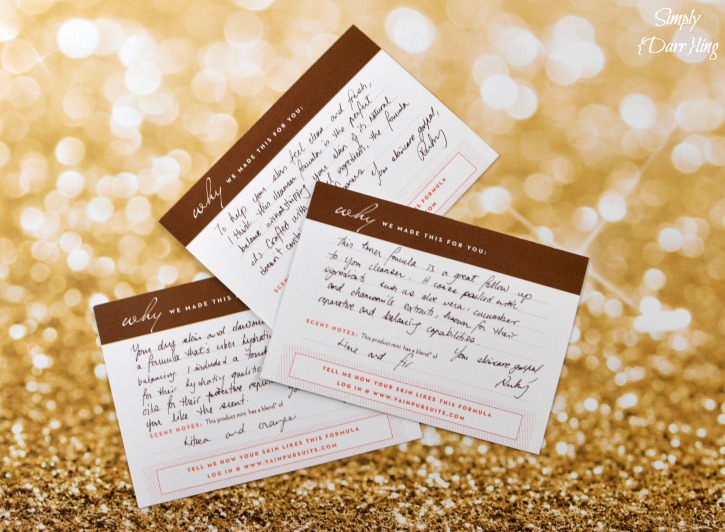 Simply
{Darr}ling
why WE MADE THIS FOR YOU:
To help your skin feel clean and fresh,
I think this cleanser formula is the perfect
balance without stripping your skin of its natural
oils. Crafted with ingredients, the formula
doesn't
You skincare
Ruby
FORMULA
.COM
why WE MADE THIS FOR YOU:
This toner fomula is a great follow up
to you cleanser. It comes packed with
ingredients such us aloe vera, cucumber
and chamomile extracts, known for their
reparative and balancing capabilities.
You skincare
SCENT NOTES: This product mini has a blend* of
lime and fir
Ruby
TELL ME HOW YOUR SKIN LIKES THIS FORMULA
LOG IN @ WWW.VAINPURSUITS.COM
why WE MADE THIS
Your dry skin and
a formula that's uber
balancing. I included a
for their hydrating
oils for their protective
you like the scent.
SCENT NOTES: This product mini has a blend* of
litsea and orange
TELL ME HOW YOUR SKIN LIKES THIS FORMULA
LOG IN @ WWW.VAINPURSUITS.COM